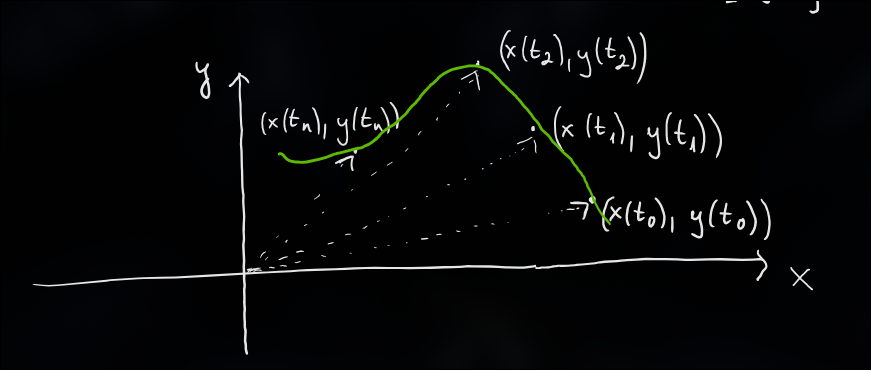 (x(t₂), y(t₂))
y
(x(tₙ), y(tₙ))
(x(t₁), y(t₁))
(x(t₀), y(t₀))
x